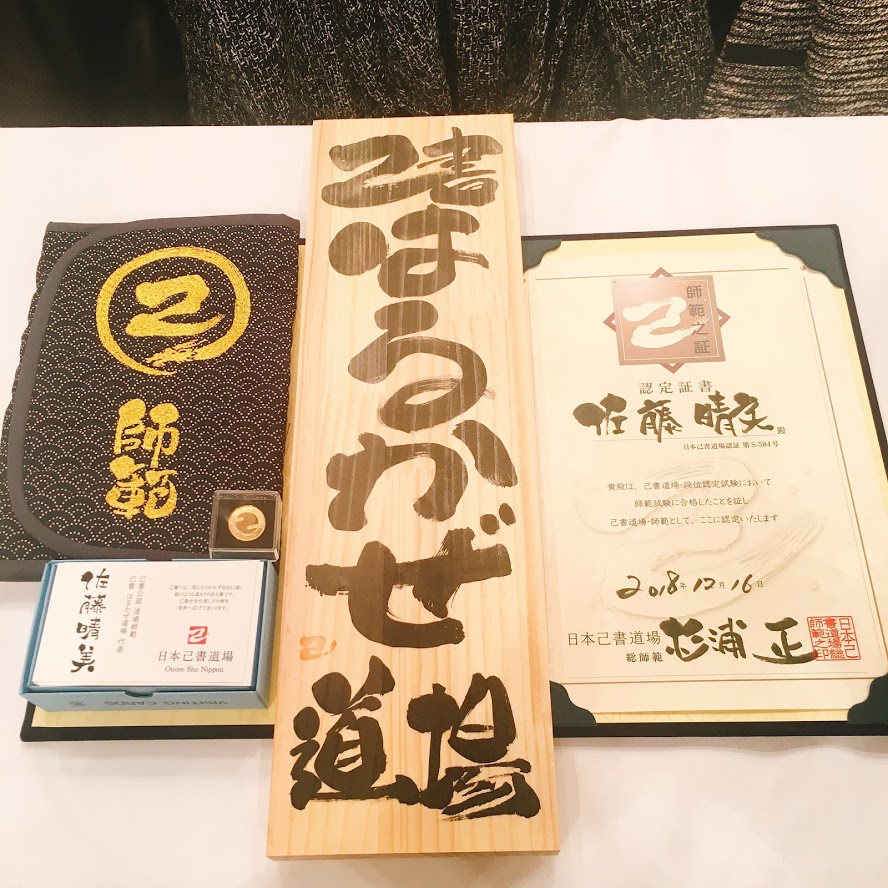 己
師範
佐藤晴美
己書公認 道場師範
己書 はるかぜ道場 代表
日本己書道場
Onore Sho Nippon
VISITING CARDS
己書
はるかぜ
道場
己
師範之証
認定証書
佐藤 晴美 殿
日本己書道場認証 第S-584号
貴殿は、己書道場・段位認定試験において
師範試験に合格したことを証し
己書道場・師範として、ここに認定いたします
2018年12月16日
日本己書道場
総師範 杉浦 正